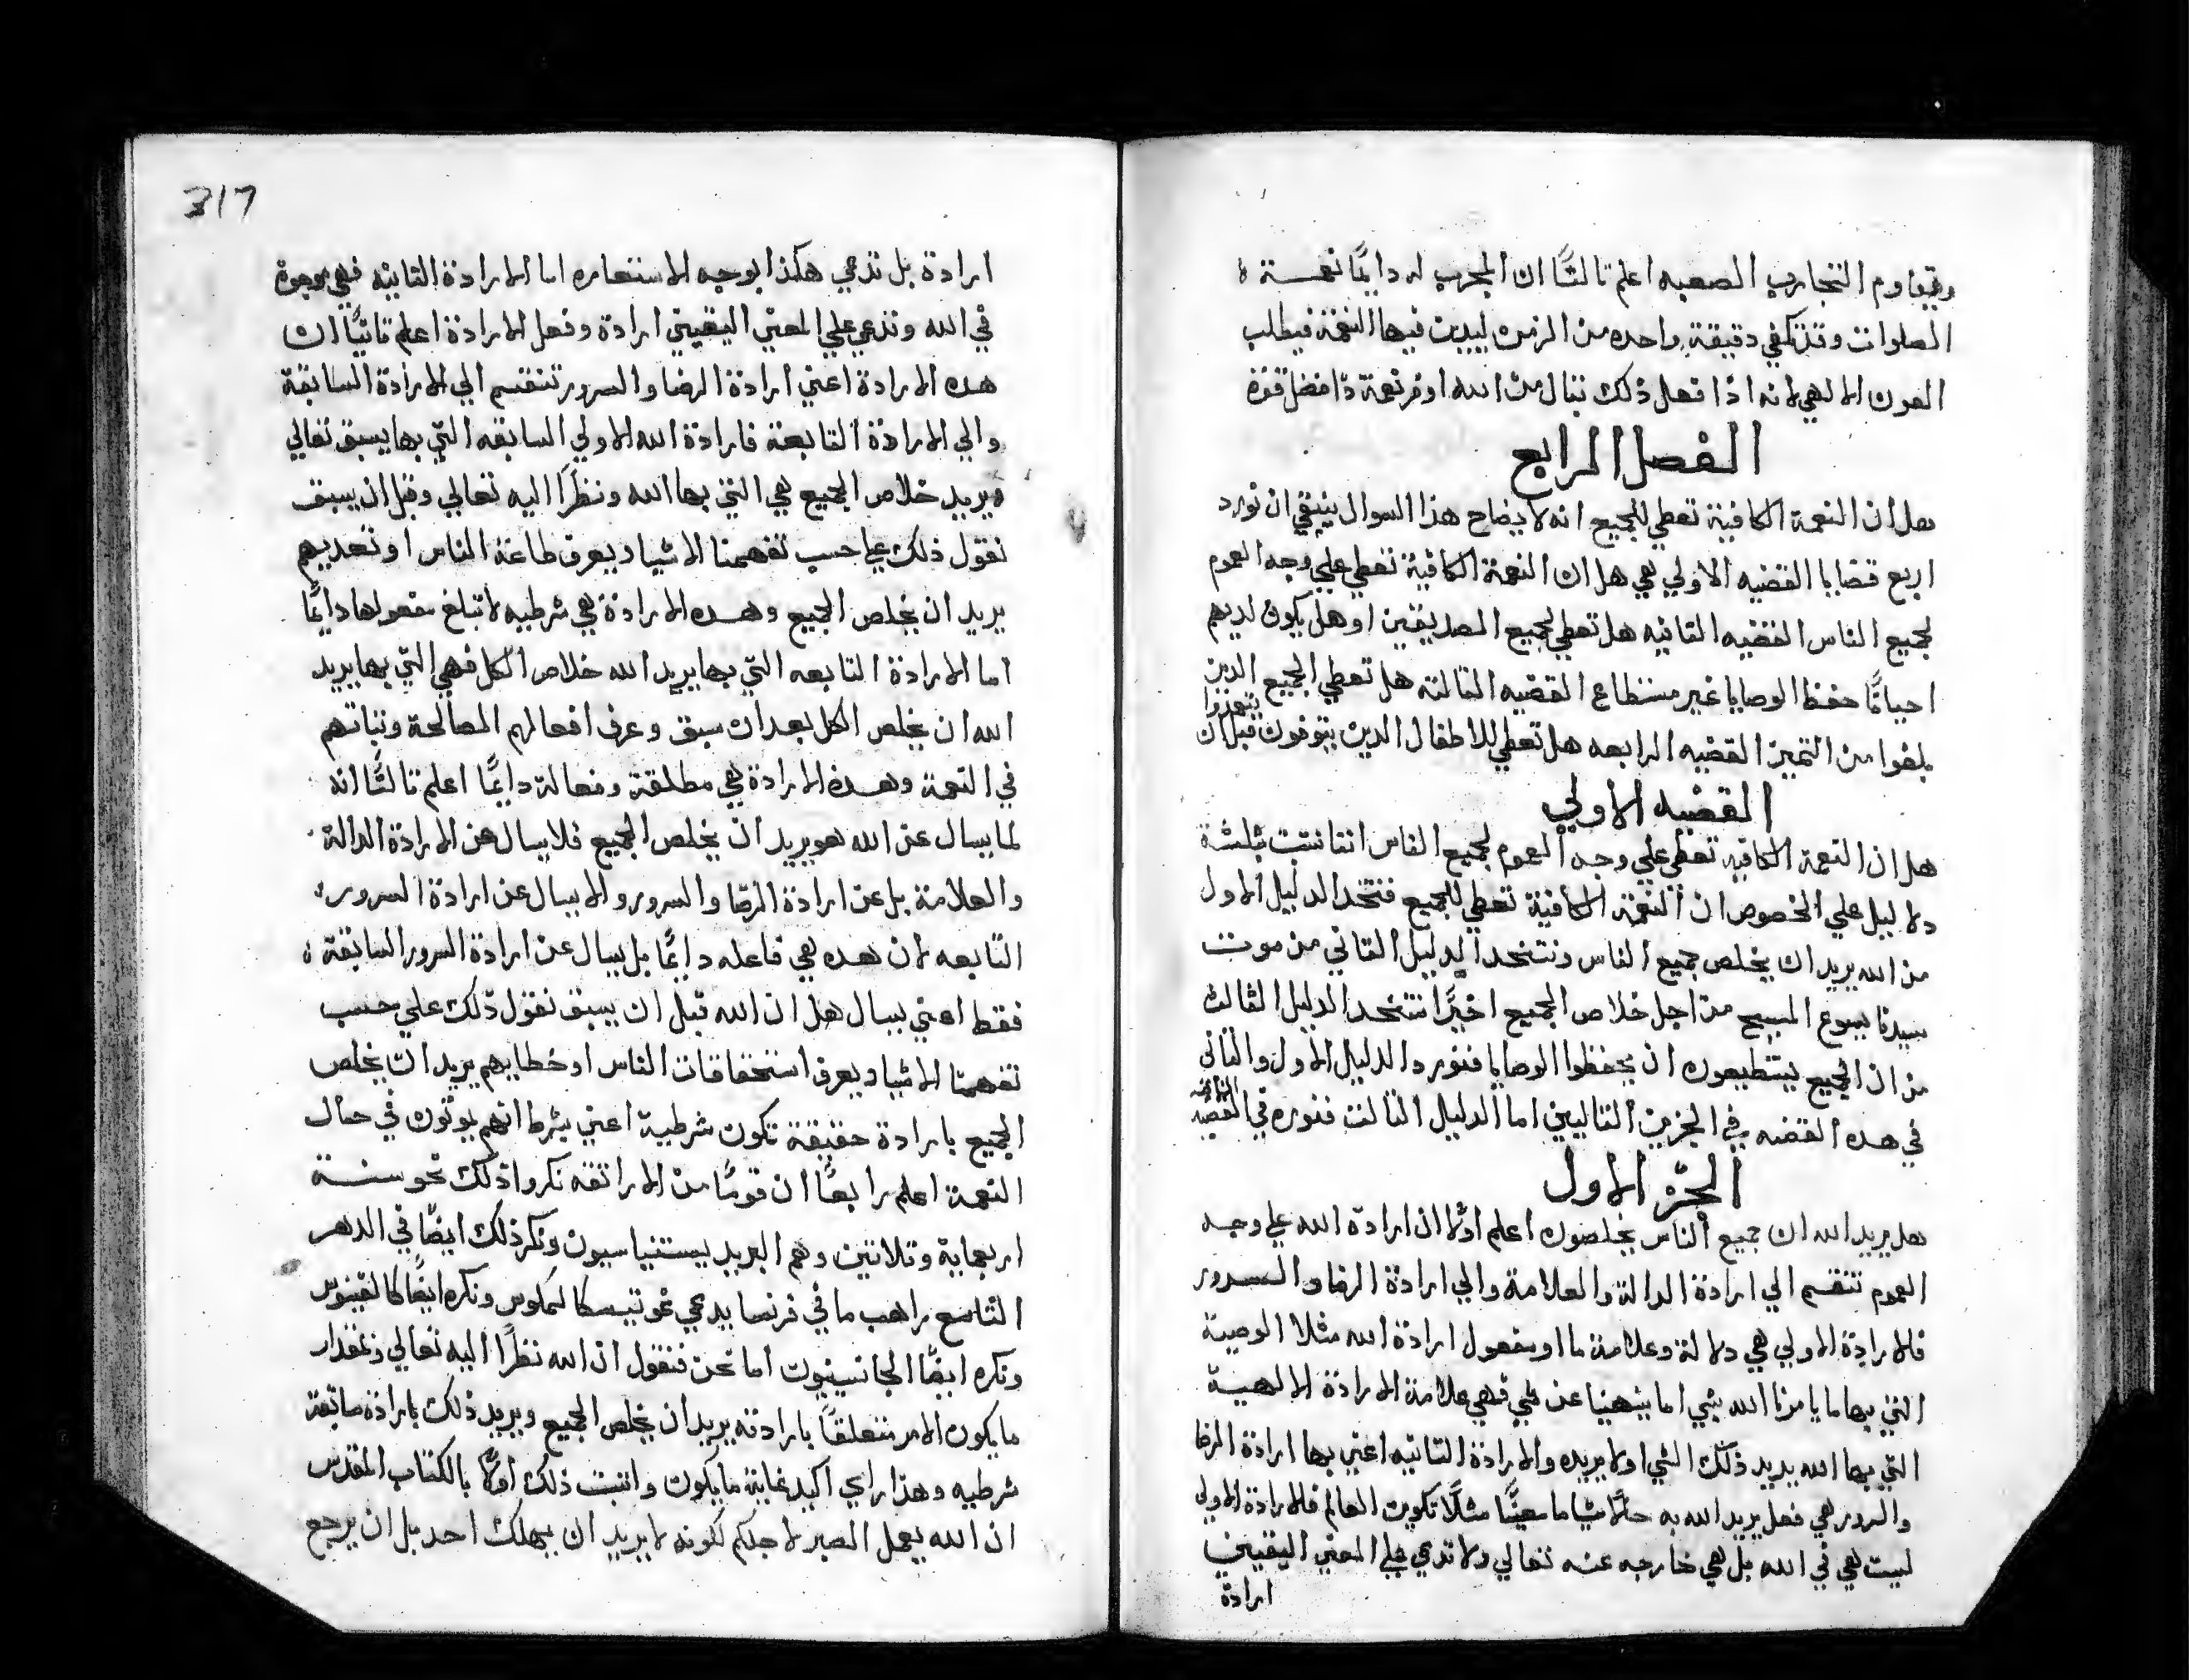 ويقاوم التجارب الصعبه اعلم تالتًا ان المجرب له دايمًا نعمة
الصلوات وقد تكفي دقيقة واحده من الزمن ليبدي فيها النعمة فيطلب
العون الالهي لانه اذا فعل ذلك ينال من الله اوفر نعمة ذا فضل قوة
الفصل الرابع
هل ان النعمة الكافية تعطي للجميع انه لايضاح هذا السوال ينبغي ان نورد
اربع قضايا القضيه الاولي هي هل ان النعمة الكافية تعطي علي وجه العموم
لجميع الناس القضيه التانيه هل تعطي لجميع الصديقين او هل يكون لديهم
احيانًا حفظ الوصايا غير مستطاع القضيه التالته هل تعطي الجميع الدين
بلغوا من التميز القضيه الرابعه هل تعطي للاطفال الدين يتوفون قبل ان
يتعمدوا
القضيه الاولي
هل ان النعمة الكافيه تعطي علي وجه العموم لجميع الناس اننا نتبت بثلثة
دلايل علي الخصوص ان النعمة الكافية تعطي للجميع فنتخد الدليل الاول
من الله يريد ان يخلص جميع الناس ونتخد الدليل التاني من موت
سيدنا يسوع المسيح من اجل خلاص الجميع اخيرًا نتخد الدليل التالت
من ان الجميع يستطيعون ان يحفظوا الوصايا فنورد الدليل الاول والتاني
في هده القضيه وفي الجزين التاليين اما الدليل التالت فنورده في القضيه
التانيه
الجزء الاول
هل يريد الله ان جميع الناس يخلصون اعلم اولًا ان ارادة الله علي وجه
العموم تنقسم الي ارادة الدالة والعلامة والي ارادة الرضا والسرور
فالارادة الاولي هي دلالة وعلامة ما او مفعول ارادة الله مثلا الوصية
التي بها ما يامرنا الله بشي اما ينهينا عن شي فهي علامة الارادة الالهية
التي بها الله يريد ذلك الشي او لا يريده والارادة التانيه اعني بها ارادة الرضا
والسرور هي فعل يريد الله به حالًا شيا ما معينًا مثلًا تكوين العالم فالارادة الاولي
ليست هي في الله بل هي خارجه عنه تعالي ولا تدعي علي المعني اليقيني
ارادة
317
ارادة بل تدعي هكذا بوجه الاستعاره اما الارادة التانيه فهي موجودة
في الله وتدعي علي المعني اليقيني ارادة وفعل الارادة اعلم تانيًا ان
هده الارادة اعني ارادة الرضا والسرور تنقسم الي الارادة السابقة
والي الارادة التابعة فارادة الله الاولي السابقه التي بها يسبق تعالي
ويريد خلاص الجميع هي التي بها الله ونظرًا اليه تعالي وقبل ان يسبق
نقول ذلك علي حسب تفهمنا الاشيا ويعرف طاعة الناس او تعديهم
يريد ان يخلص الجميع وهده الارادة هي شرطيه لا تبلغ مفعولها دايمًا
اما الارادة التابعه التي بها يريد الله خلاص الكل فهي التي بها يريد
الله ان يخلص الكل بعد ان سبق وعرف افعالهم الصالحة وتباتهم
في النعمة وهده الارادة هي مطلقة وفعالة دايمًا اعلم تالتًا انه
لما يسال عن الله هو يريد ان يخلص الجميع فلا يسال عن الارادة الدالة
والعلامة بل عن ارادة الرضا والسرور ولا يسال عن ارادة السرور
التابعه لان هده هي فاعله دايمًا بل يسال عن ارادة السرور السابقة
فقط اعني يسال هل ان الله قبل ان يسبق نقول ذلك علي حسب
تفهمنا الاشيا ويعرف استحقاقات الناس او خطاييهم يريد ان يخلص
الجميع بارادة حقيقة تكون شرطية اعني بشرط انهم يوتون في حال
النعمة اعلم رابعًا ان قومًا من الاراتقه نكروا ذلك نحو سنة
اربعماية وتلاتين وهم البريديستنياسيون ونكر ذلك ايضًا في الدهر
التاسع راهب ما في فرنسا يدعي غوتيسكالكوس ونكره ايضًا كالفينوس
ونكره ايضًا الجانسينيون اما نحن فنقول ان الله نظرًا اليه تعالي وبمقدار
ما يكون الامر متعلقًا بارادته يريد ان يخلص الجميع ويريد ذلك بارادة سابقة
شرطيه وهذا راي اكيد غاية ما يكون واتبت ذلك اولًا بالكتاب المقدس
ان الله يعمل الصبر لاجلكم لكونه لا يريد ان يهلك احد بل ان يرجع